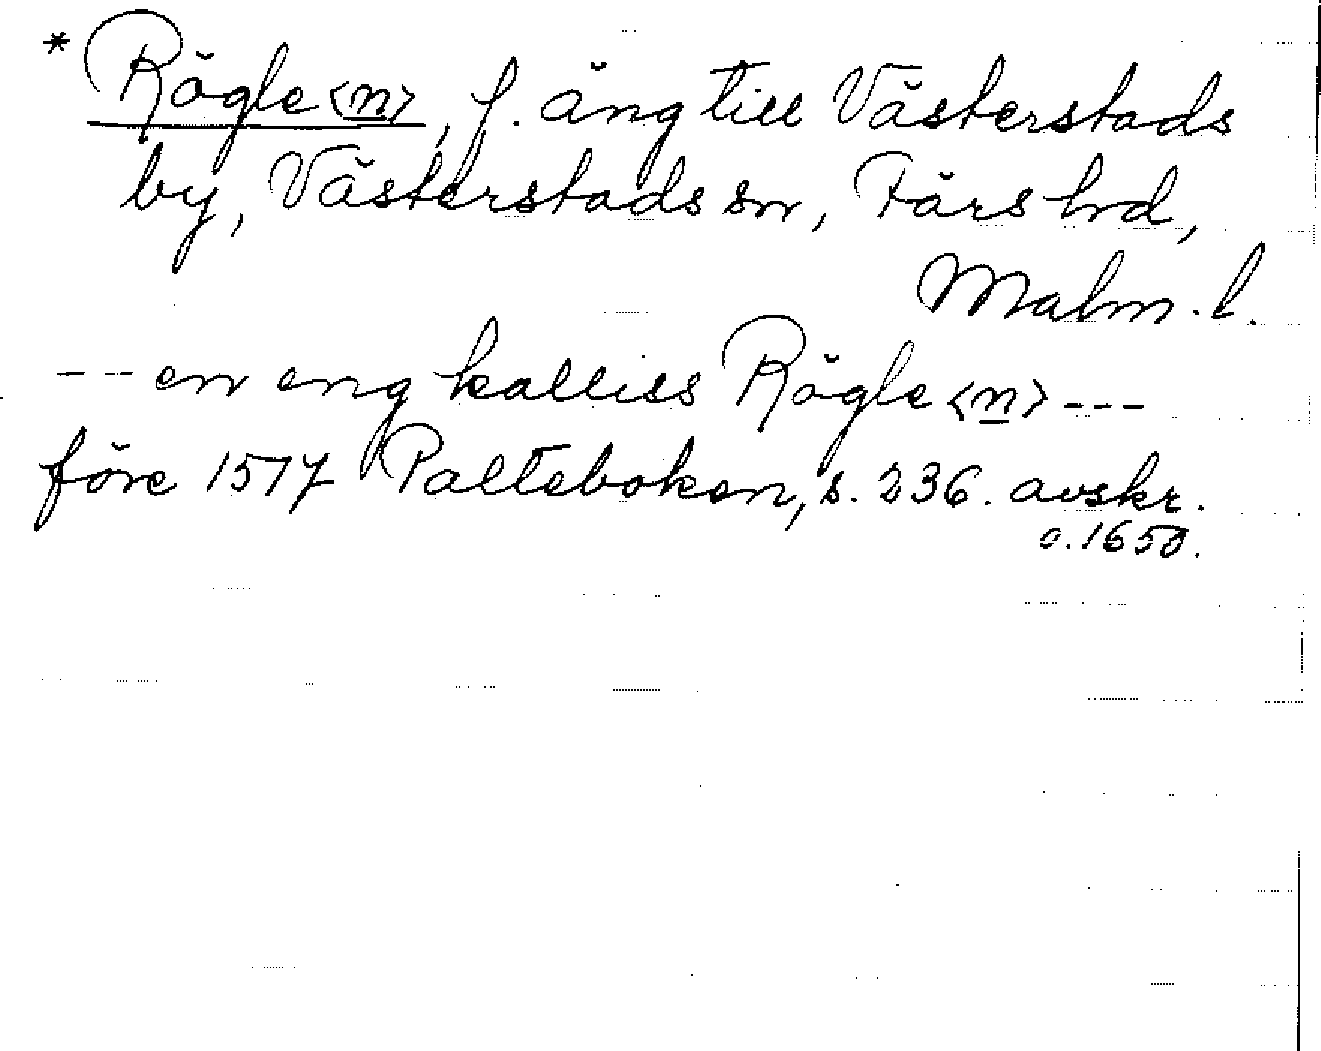 * Rögle <n>, f. äng till Västerstads
by, Västerstads sn, Färs hd,
Malm. l.
-- en eng kalliss Rögle <n> ---
före 1517 Palteboken, s. 236. avskr.
o. 1650.